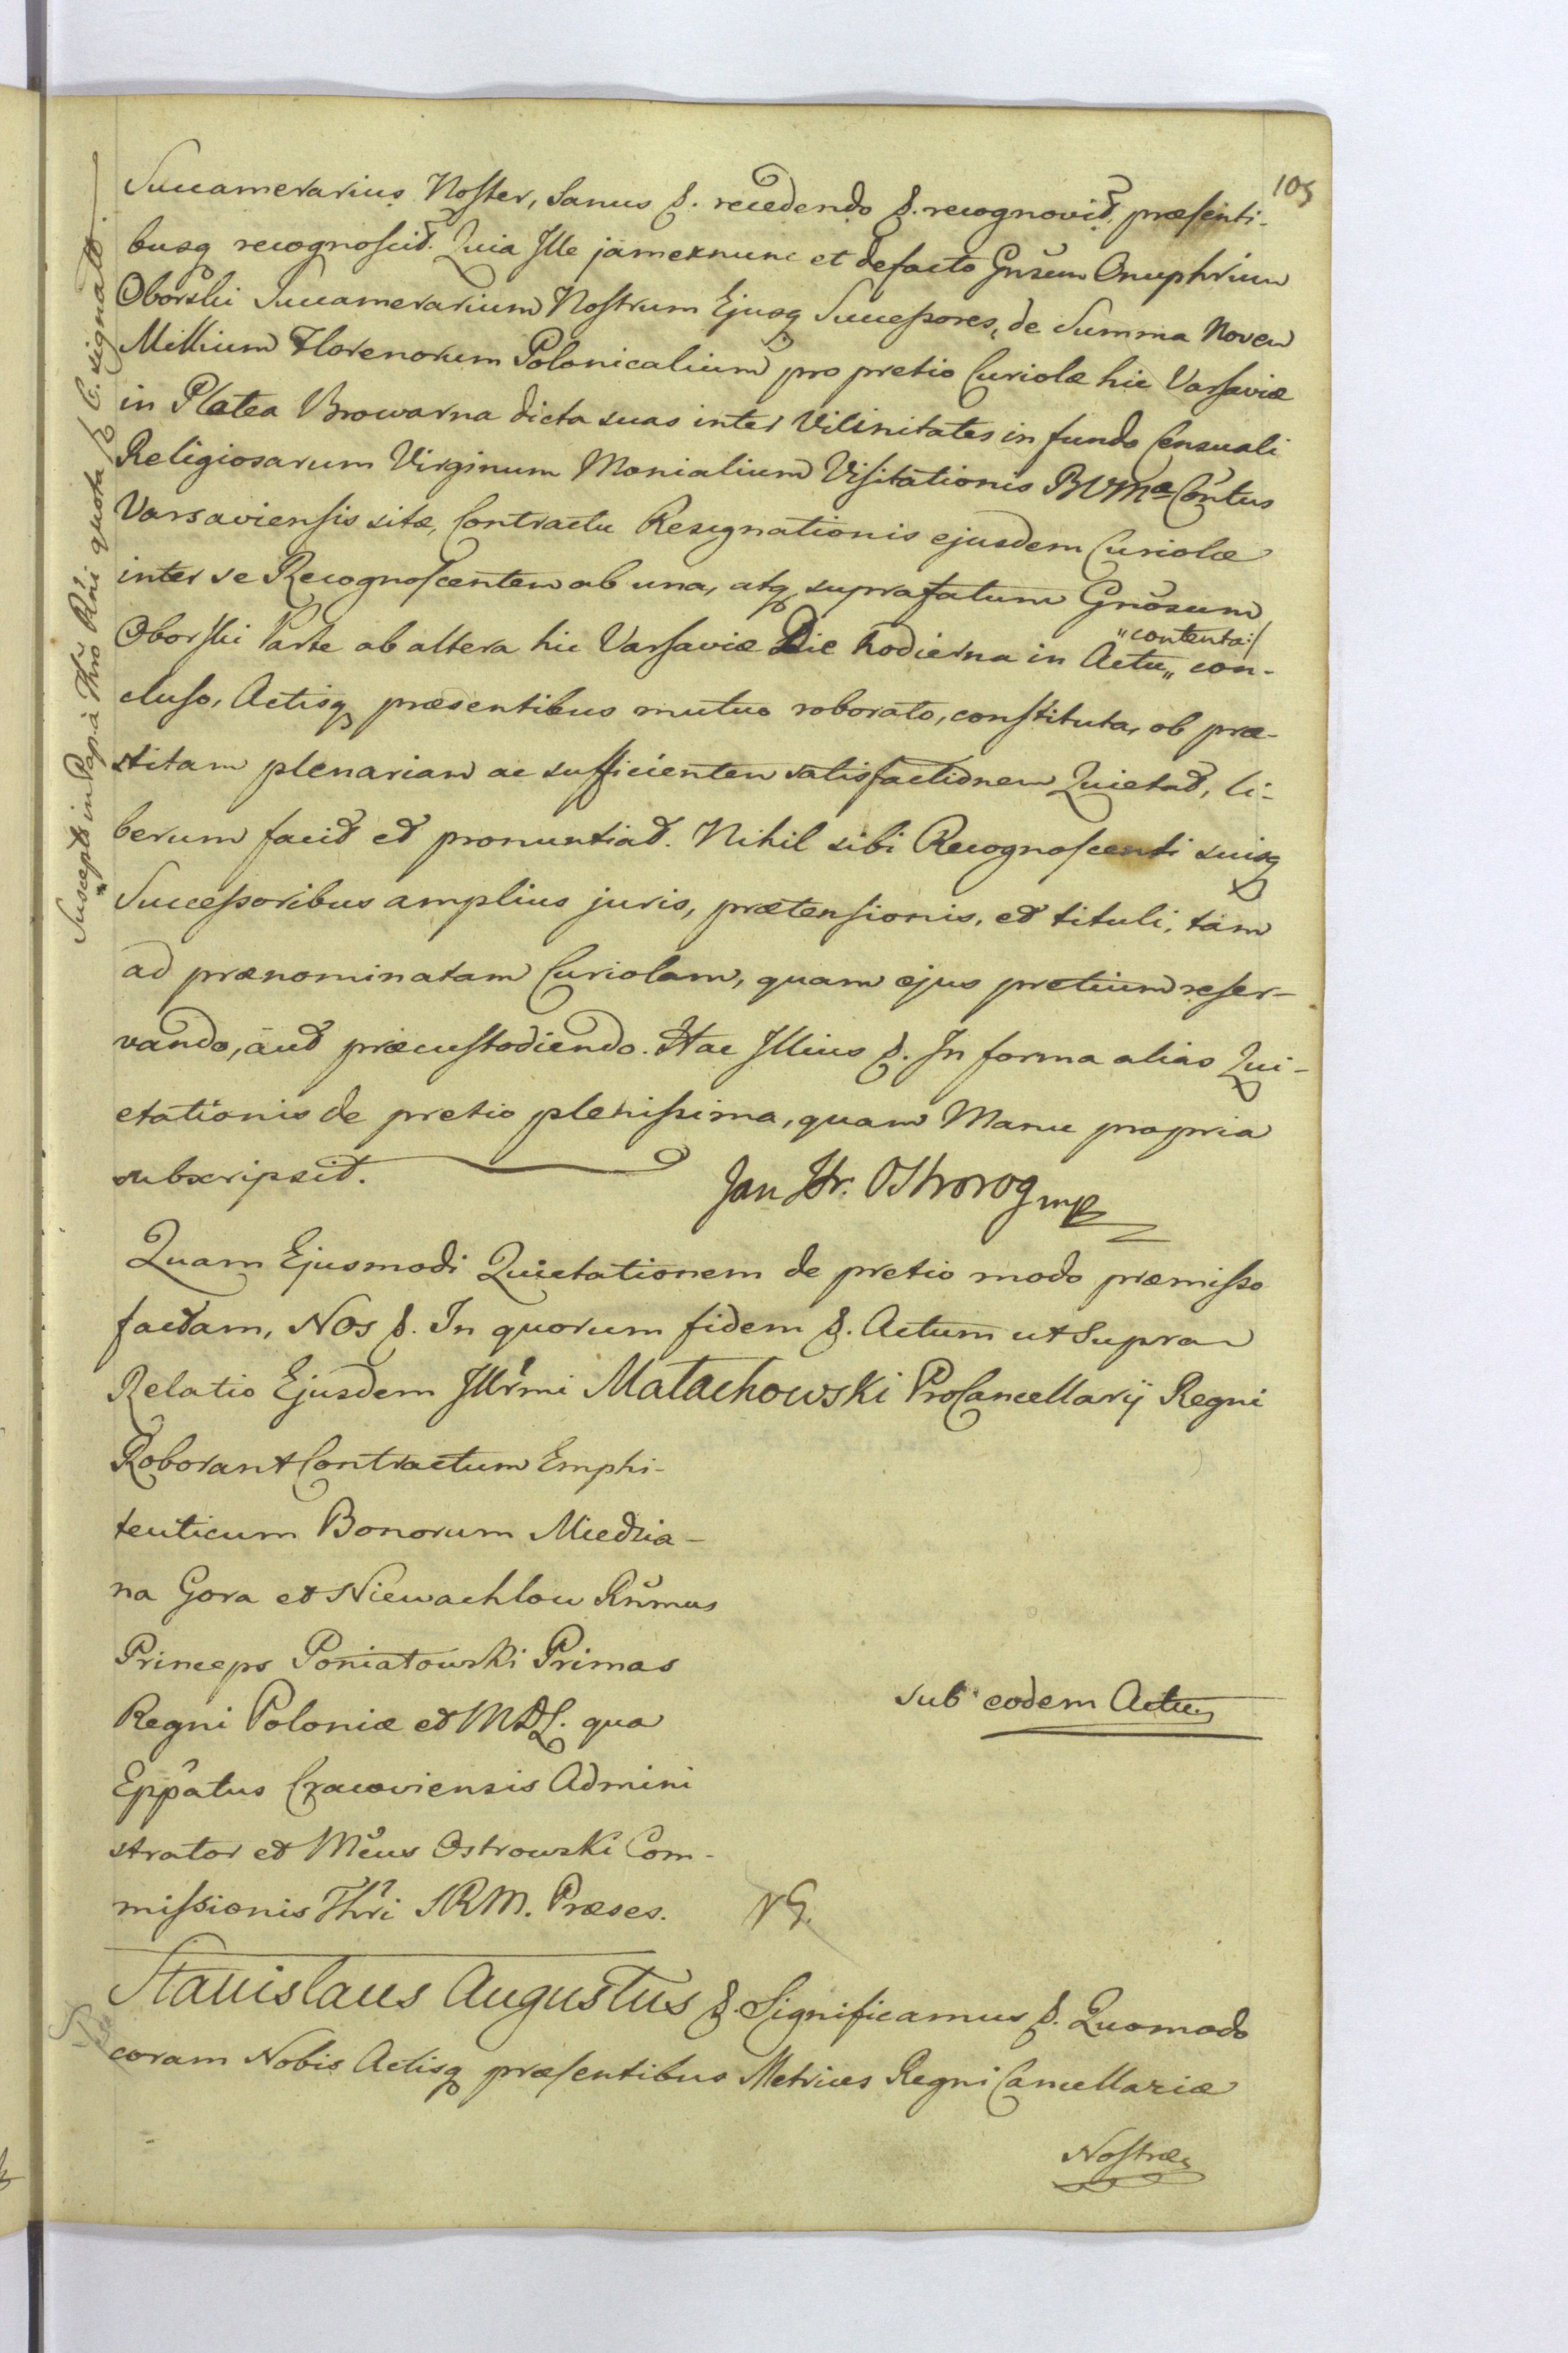 105
Succamerarius Noster, Sanus &. recedendo &. recognovit, præsenti-
busq recognoscit. Quia Ille jamexnunc et defacto Gnsum Onuphrium
Oborski Succamerarium Nostrum Ejusq Successores, de Summa Novem
Millium Florenorum Polonicalium pro pretio Curiolæ hic Varsaviæ
in Platea Browarna dicta suas inter Vicinitates in fundo Censuali
Religiosarum Virginum Monialium Visitationis BVMæ Contus
Varsaviensis sitæ, Contractu Resignationis ejusdem Curiolæ
inter se Recognoscentem ab una, atq suprafatum Gnosum
Oborski Parte ab altera hic Varsaviæ Die hodierna in Actu "contenta:/ con-
cluso, Actisq præsentibus mutuo roborato, constituta, ob præ-
stitam plenariam ac sufficientem satisfactionem Quietat, li-
berum facit et pronuntiat. Nihil sibi Recognoscenti suisq
Successoribus amplius juris, prætensionis, et tituli, tam
ad prænominatam Curiolam, quam ejus pretium reser-
vando, aut præcustodiendo. Hac Illius &. In forma alias Qui-
etationis de pretio plenissima, quam Manu propria
subscripsit.
Jan Hr. Ostrorog mp
Quam Ejusmodi Quietationem de pretio modo præmisso
factam, Nos &. In quorum fidem &. Actum ut Supra
Relatio Ejusdem Illrmi Małachowski ProCancellarij Regni
Roborant Contractum Emphi-
teuticum Bonorum Miedzia-
na Gora et Niewachlow Rnmus
Princeps Poniatowski Primas
Regni Poloniæ et MDL. qua
Eppatus Cracoviensis Admini
strator et Mcus Ostrowski Com-
missionis Thri SRM. Præses.
sub eodem Actu
NG.
Stanislaus Augustus &. Significamus &. Quomodo
coram Nobis Actisq præsentibus Metrices Regni Cancellariæ
Nostræ
Suscepta in Pap. à Thro Rni quota C. signata